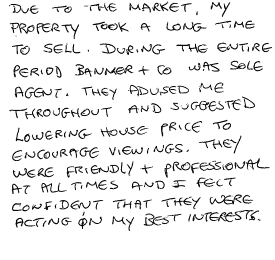 DUE TO THE MARKET, MY
PROPERTY TOOK A LONG TIME
TO SELL. DURING THE ENTIRE
PERIOD BANNER + CO WAS SOLE
AGENT. THEY ADVISED ME
THROUGHOUT AND SUGGESTED
LOWERING HOUSE PRICE TO
ENCOURAGE VIEWINGS. THEY
WERE FRIENDLY + PROFESSIONAL
AT ALL TIMES AND I FELT
CONFIDENT THAT THEY WERE
ACTING ON MY BEST INTERESTS.